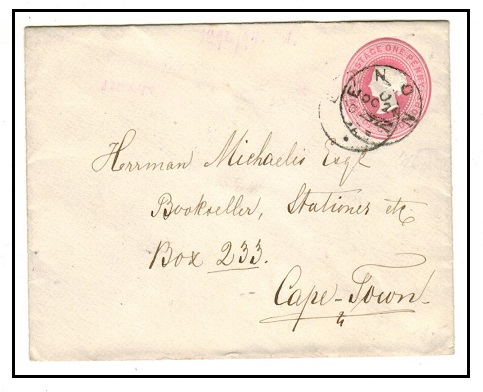 POSTAGE ONE PENNY
Herrman Michaelis Esqr
Bookseller, Stationer etc
Box 233.
Cape-Town